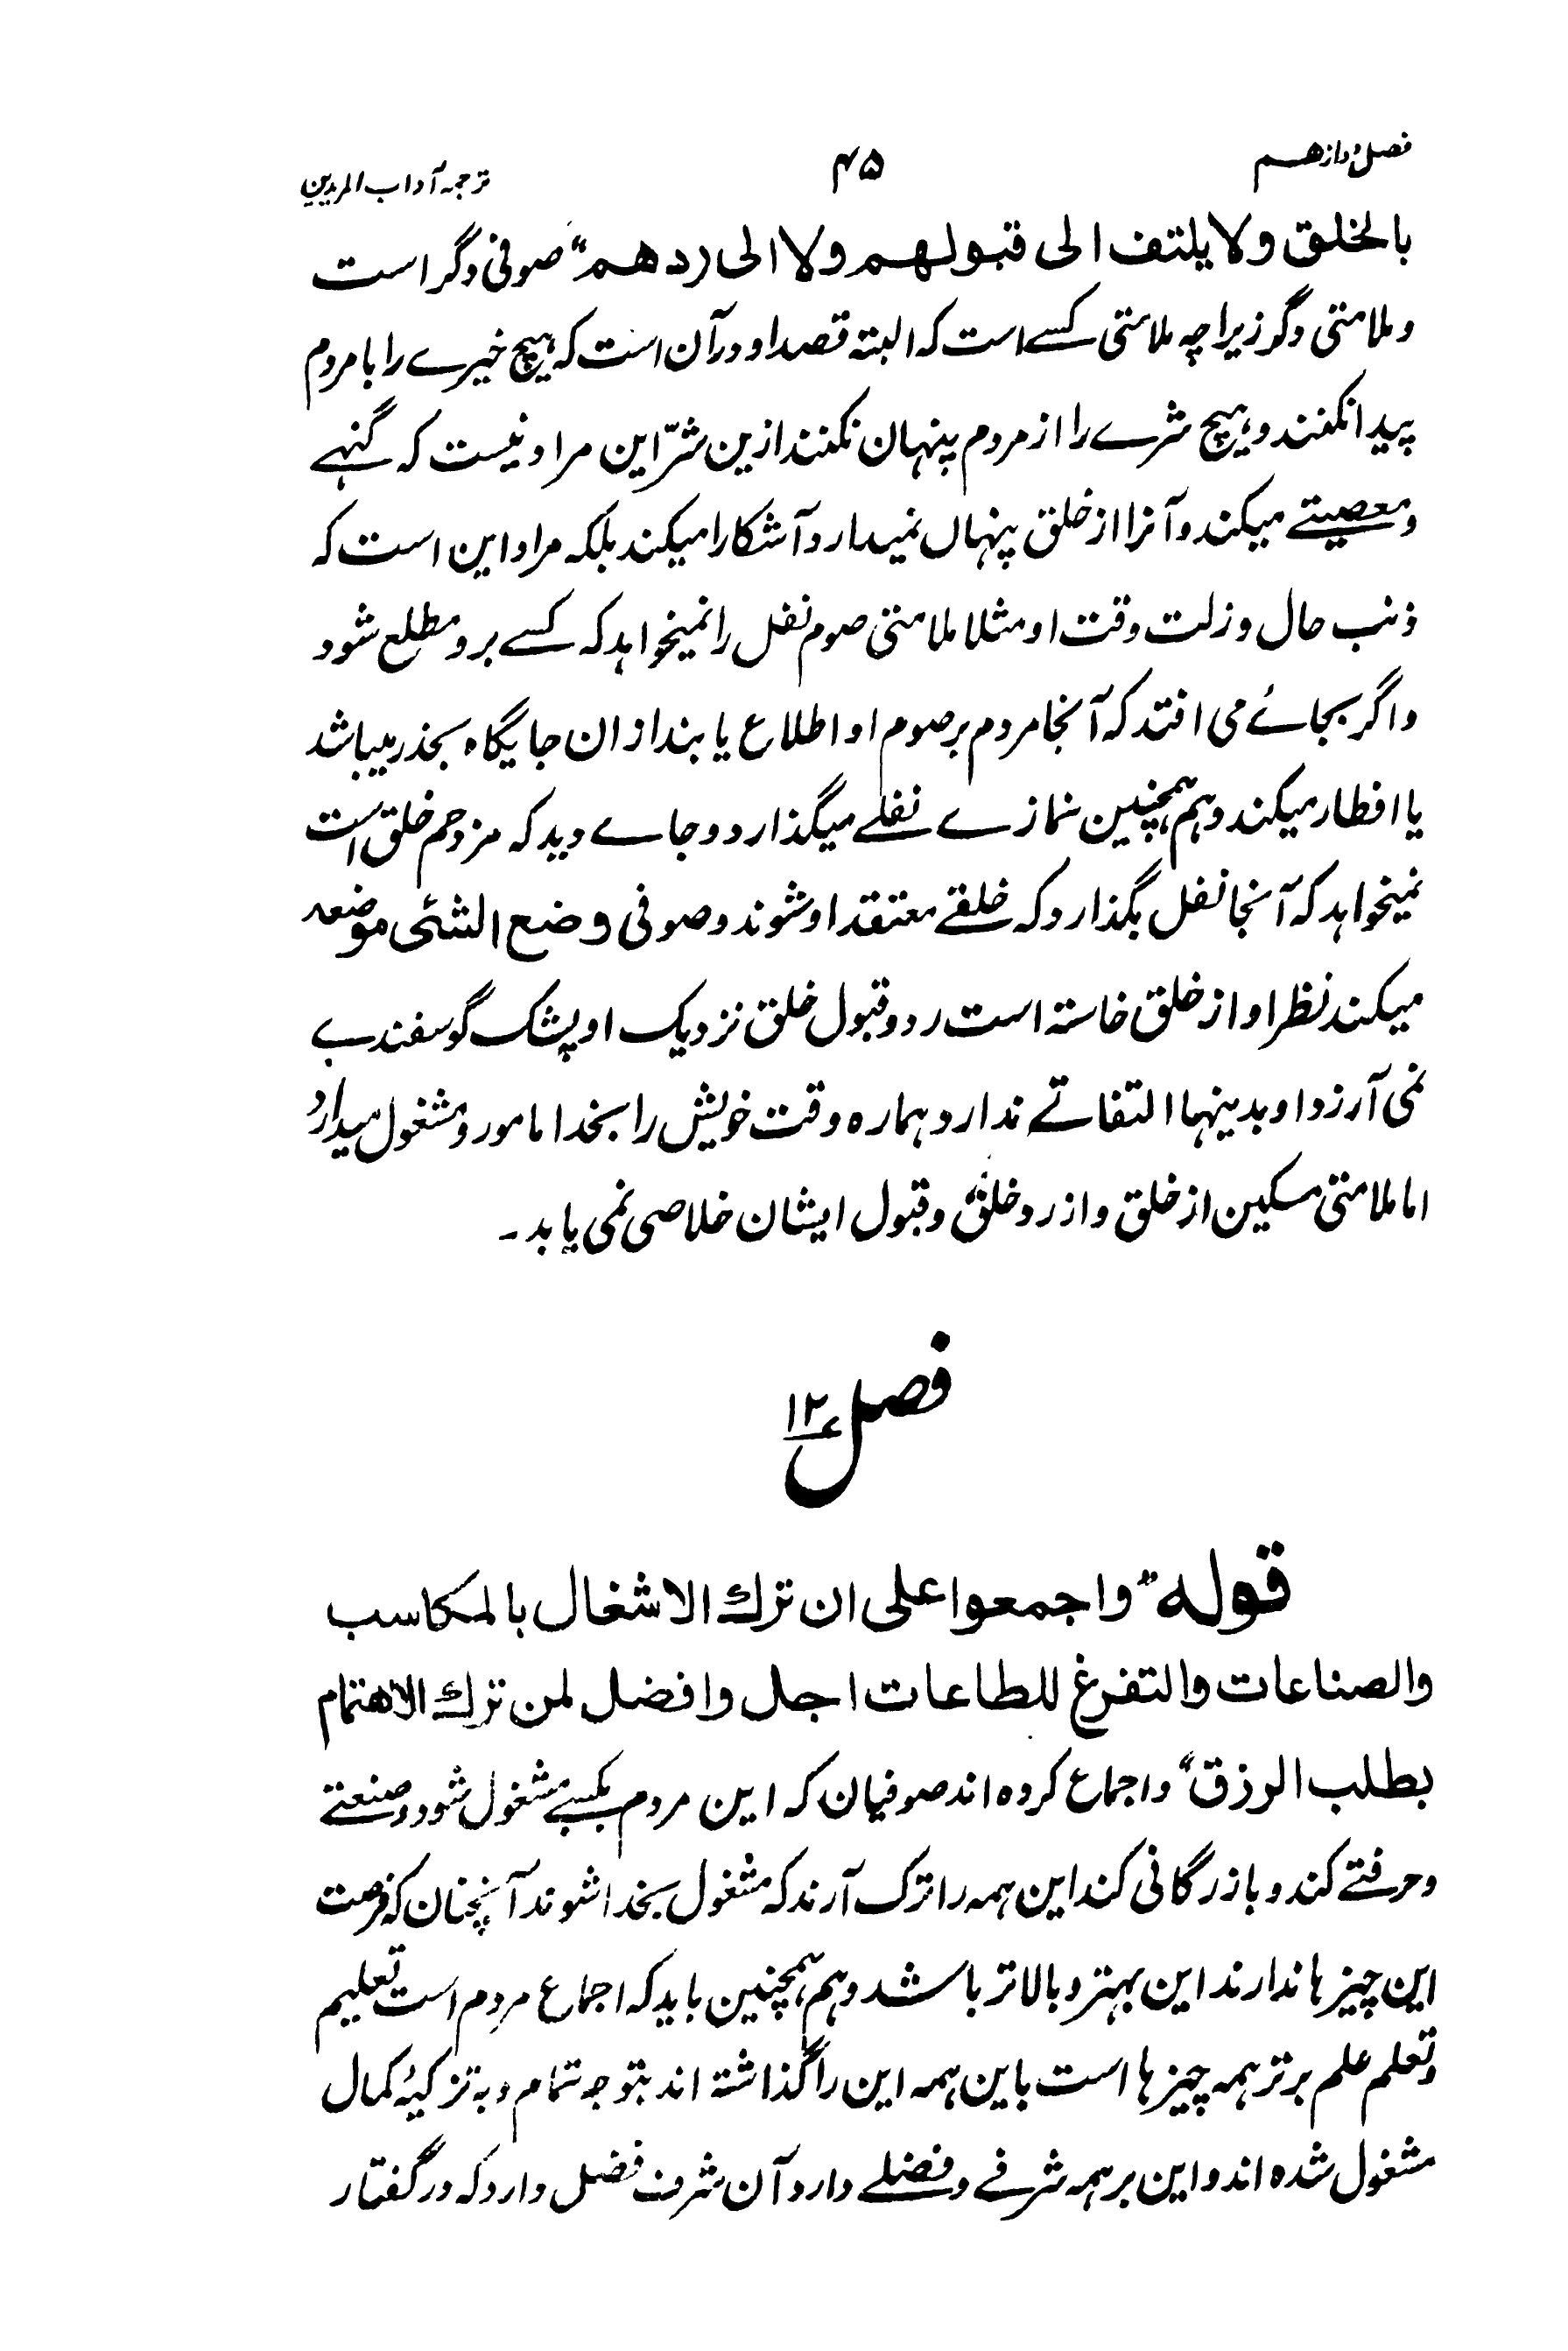 فصل دوازدهم ۴۵ ترجمه آداب المریدین
بالخلق ولا یلتف الی قبولهم ولا الی ردهم" صوفی دگر است
و ملامتی دگر زیراچه ملامتی کسے است که البته قصد او در آن است که هیچ خیرے را با مردم
پیدا نکنند و هیچ شرے را از مردم پنهان نکنند ازین شرّ این مراد نیست که گنہے
و معصیتے میکند و آنرا از خلق پنهاں نمیدارد آشکارا میکند بلکه مراد این است که
ذنب حال و زلت وقت او مثلا ملامتی صوم نفل را نمیخواهد که کسے برو مطلع شود
و اگر بجائے می افتد که آنجا مردم بر صوم او اطلاع یابند ازان جایگاه بحذر میباشد
یا افطار میکند و هم همچنین نمازے نفلے میگذارد و جاے دید که مزدحم خلق است
نمیخواهد که آنجا نفل بگذارد که خلقے معتقد او شوند و صوفی وضع الشئی موضعه
میکند نظر او از خلق خاسته است رد و قبول خلق نزدیک او پشک گوسفندے
نمی آرزد او بدینها التفاتے ندارد هماره وقت خویش را بخدا مامور و مشغول میدارد
اما ملامتی مسکین از خلق و از رد خلق و قبول ایشان خلاصی نمی یابد ۔
فصل ۱۲
قوله "واجمعوا علی ان ترك الاشغال بالمکاسب
والصناعات والتفرغ للطاعات اجل وافضل لمن ترك الاهتمام
بطلب الرزق" و اجماع کرده اند صوفیان که این مردم بکسبے مشغول شود و صنعتے
و حرفتے کند و بازرگانی کند این همه را ترک آرند که مشغول بخدا شوند آنچنان که فرصت
این چیزها ندارند این بهتر و بالاتر باشد و هم همچنین باید که اجماع مردم است تعلیم
و تعلم علم برتر همه چیزها است باین همه این را گذاشته اند بتوجه تمام و به تزکیۂ کمال
مشغول شده اند و این بر همه شرفے و فضلے دارد آن شرف فضل دارد که در گفتار